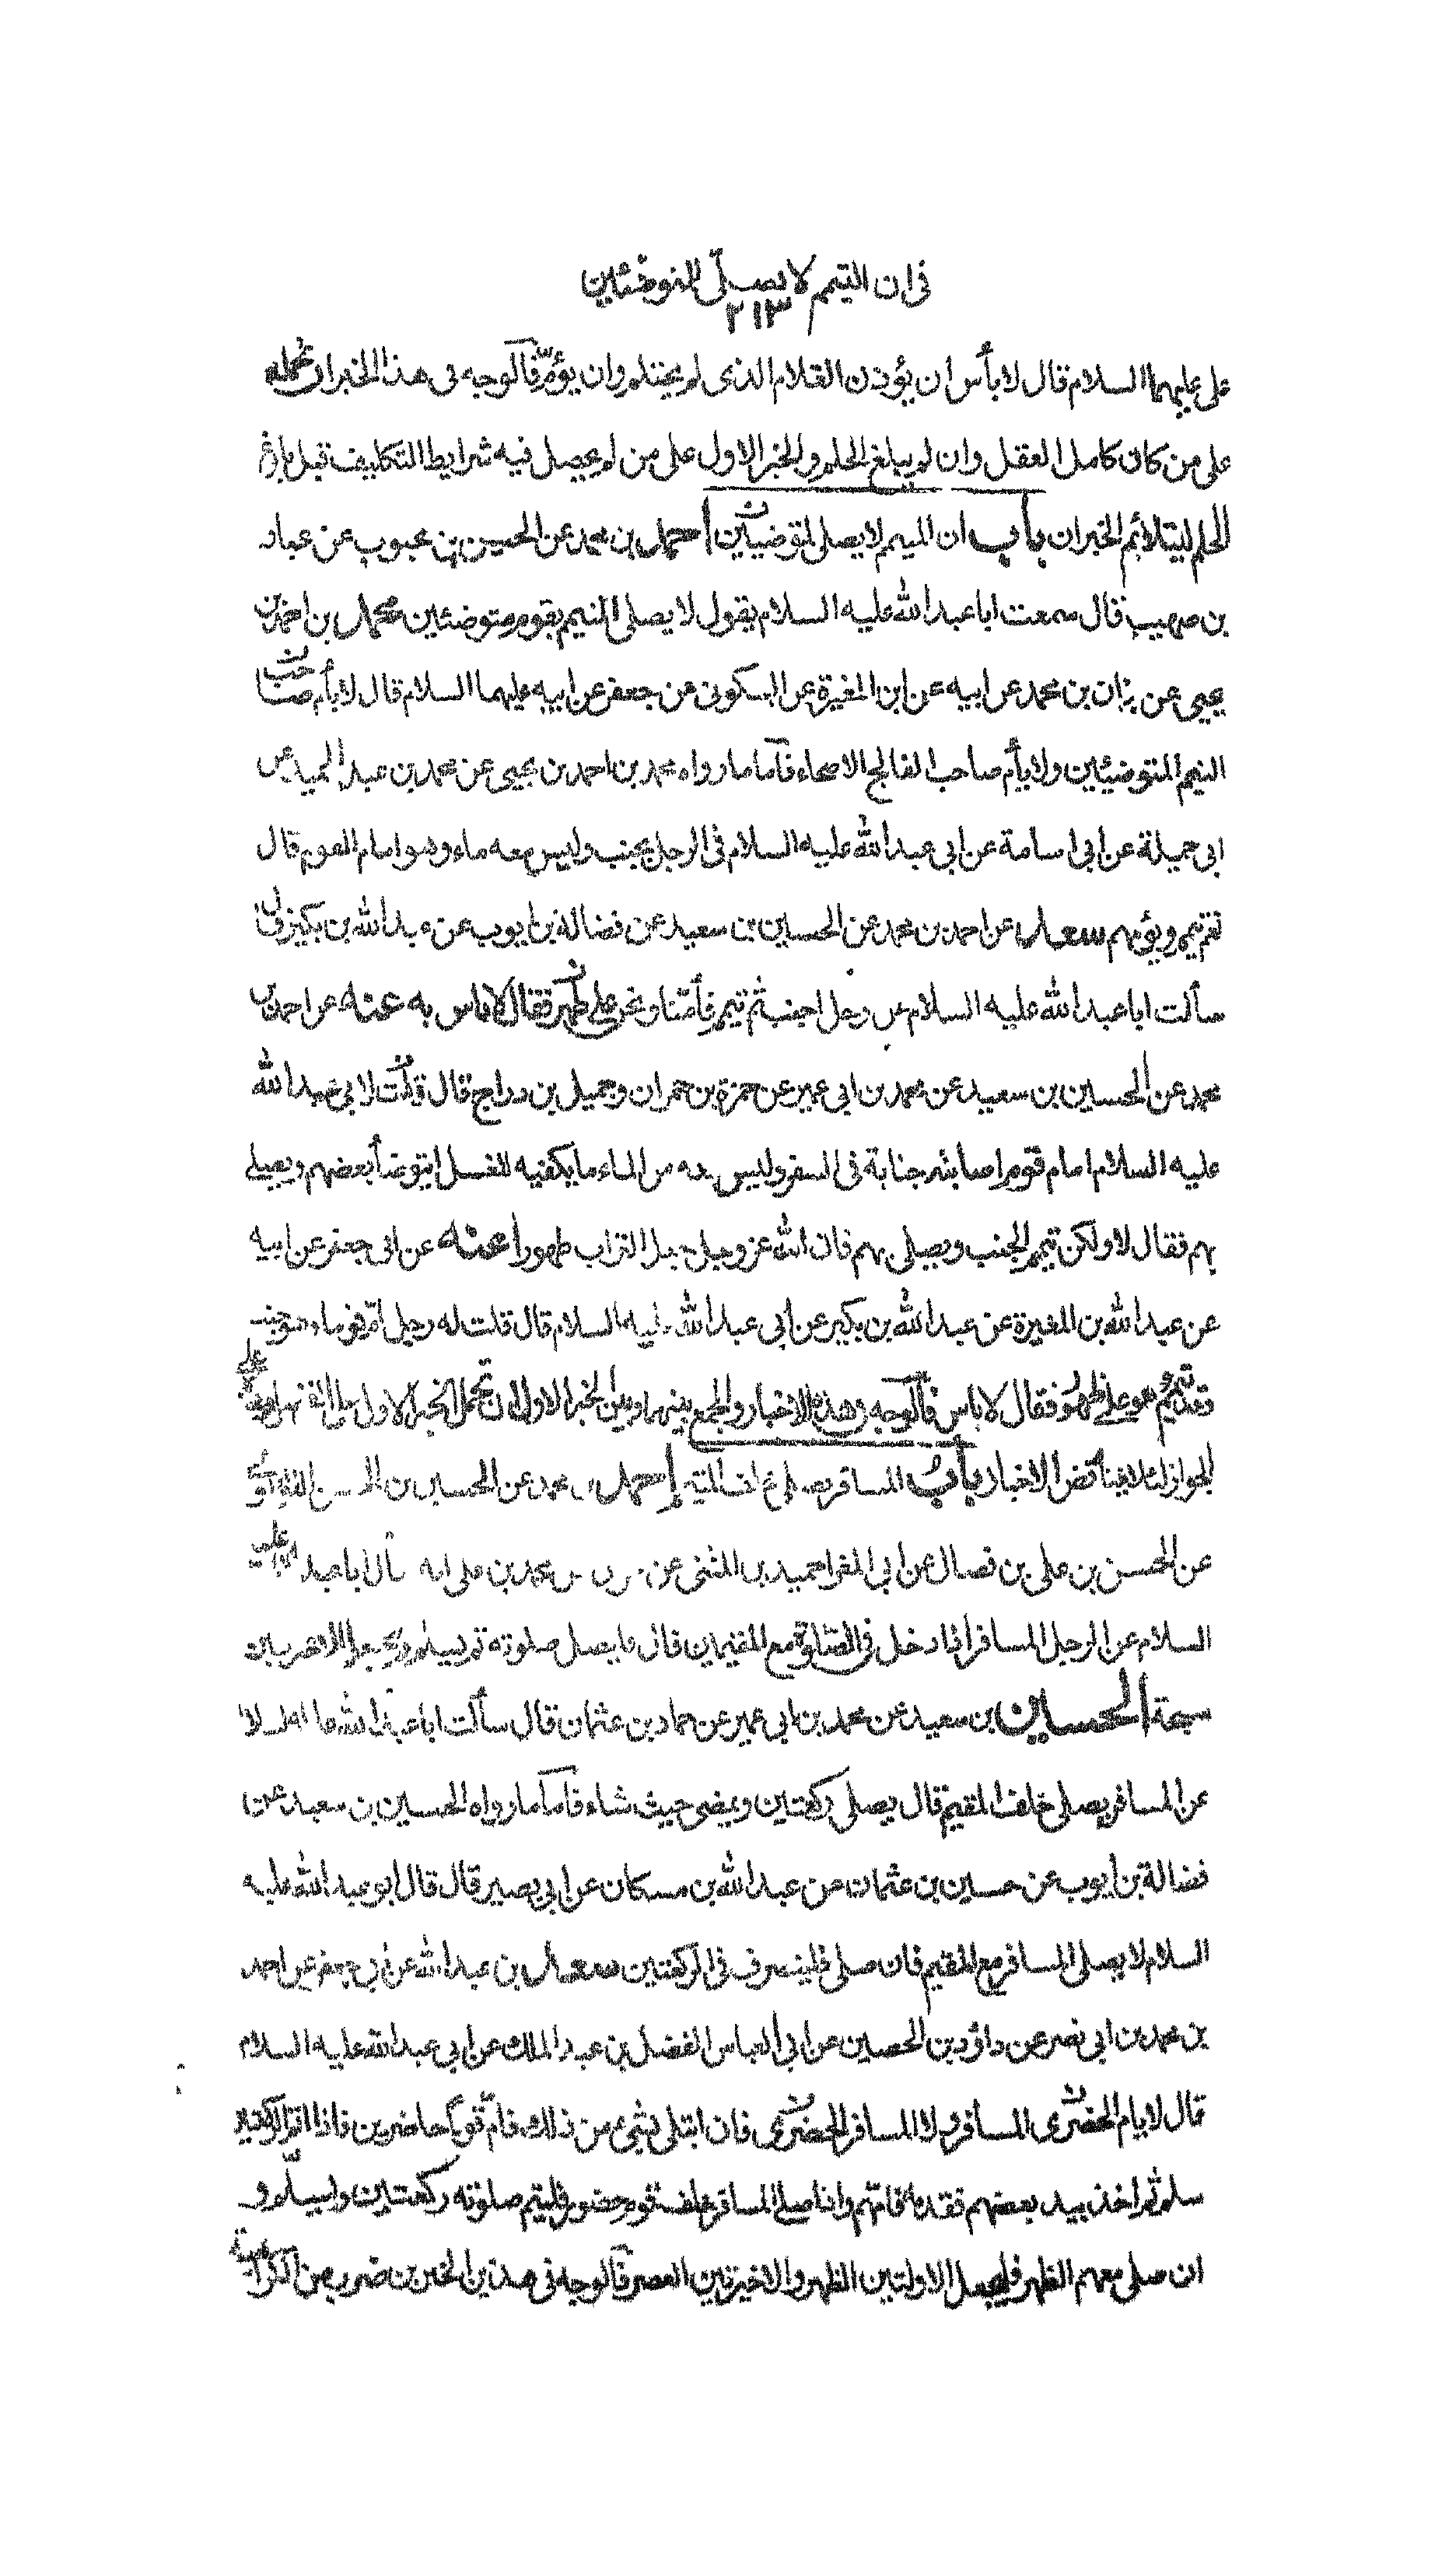 فى ان المتيمم لا يصلى بالمتوضئين
٢١٣
على عليهما السلام قال لا بأس ان يؤذن الغلام الذى لم يحتلم وان يؤمّ فالوجه فى هذا الخبر ان نحمله
على من كان كامل العقل وان لم يبلغ الحلم والخبر الاول على من لم يحصل فيه شرايط التكليف قبل بلوغ
الحلم ليتلائم الخبران باب ان المتيمم لا يصلى بالمتوضيين احمد بن محمد عن الحسين بن محبوب عن عباد
بن صهيب قال سمعت ابا عبد الله عليه السلام يقول لا يصلى المتيمم بقوم متوضئين محمد بن احمد بن
يحيى عن بنان بن محمد عن ابيه عن ابن المغيرة عن السكونى عن جعفر عن ابيه عليهما السلام قال لا يأم صاحب
التيمم المتوضئين ولا يأم صاحب الفالج الاصحاء فاما ما رواه محمد بن احمد بن يحيى عن محمد بن عبد الحميد عن
ابى جميلة عن ابى اسامة عن ابى عبد الله عليه السلام فى الرجل يجنب وليس معه ماء وهو امام القوم قال
نعم يتيمم ويؤمهم سعد عن احمد بن محمد عن الحسين بن سعيد عن فضالة بن ايوب عن عبد الله بن بكير قال
سألت ابا عبد الله عليه السلام عن رجل اجنب ثم تيمم فأمّنا ونحن على طهر فقال لا باس به عنه عن احمد بن
محمد عن الحسين بن سعيد عن محمد بن ابى عمير عن حمزة بن حمران وجميل بن دراج قال قلت لابى عبد الله
عليه السلام امام قوم اصابته جنابة فى السفر وليس معه من الماء ما يكفيه للغسل ايتوضأ بعضهم ويصلى
بهم فقال لا ولكن تيمم الجنب ويصلى بهم فان الله عز وجل جعل التراب طهورا عنه عن ابى جعفر عن ابيه
عن عبد الله بن المغيرة عن عبد الله بن بكير عن ابى عبد الله عليه السلام قال قلت له رجل امّ قوما وهو جنب
وقد تيمم وهو على طهور فقال لا باس فالوجه فى هذه الاخبار والجمع بينهما وبين الخبر الاول ان نحمل الخبر الاول على
الجواز لئلا يتناقض الاخبار باب المسافر يصلى خلف المقيم احمد بن محمد عن الحسين بن
عن الحسن بن على بن فضال عن ابى المغرا حميد بن المثنى عن محمد بن على انه سأل ابا عبد الله عليه
السلام عن الرجل المسافر اذا دخل فى الصلوة مع المقيمين قال فليصل صلوته ثم يسلم ويجعل الاخيرتين
سبحة الحسين بن سعيد عن محمد بن ابى عمير عن حماد بن عثمان قال سألت ابا عبد الله عليه السلام
عن المسافر يصلى خلف المقيم قال يصلى ركعتين ويمضى حيث شاء فاما ما رواه الحسين بن سعيد عن
فضالة بن ايوب عن حسين بن عثمان عن عبد الله بن مسكان عن ابى بصير قال قال ابو عبد الله عليه
السلام لا يصلى المسافر مع المقيم فان صلى فلينصرف فى الركعتين سعد بن عبد الله عن ابى جعفر عن احمد
بن محمد بن ابى نصر عن داؤد بن الحصين عن ابى العباس الفضل بن عبد الملك عن ابى عبد الله عليه السلام
قال لا يام الحضرى المسافر ولا المسافر الحضرى فان ابتلى بشئ من ذلك فامّ قوما حاضرين فاذا اتم الركعتين
سلم ثم اخذ بيد بعضهم فقدمه فامّهم واذا صلى المسافر خلف قوم حضور فليتم صلوته ركعتين ويسلم و
ان صلى معهم الظهر فليجعل الاولتين الظهر والاخيرتين العصر فالوجه فى هذين الخبرين ضرب من الكراهية